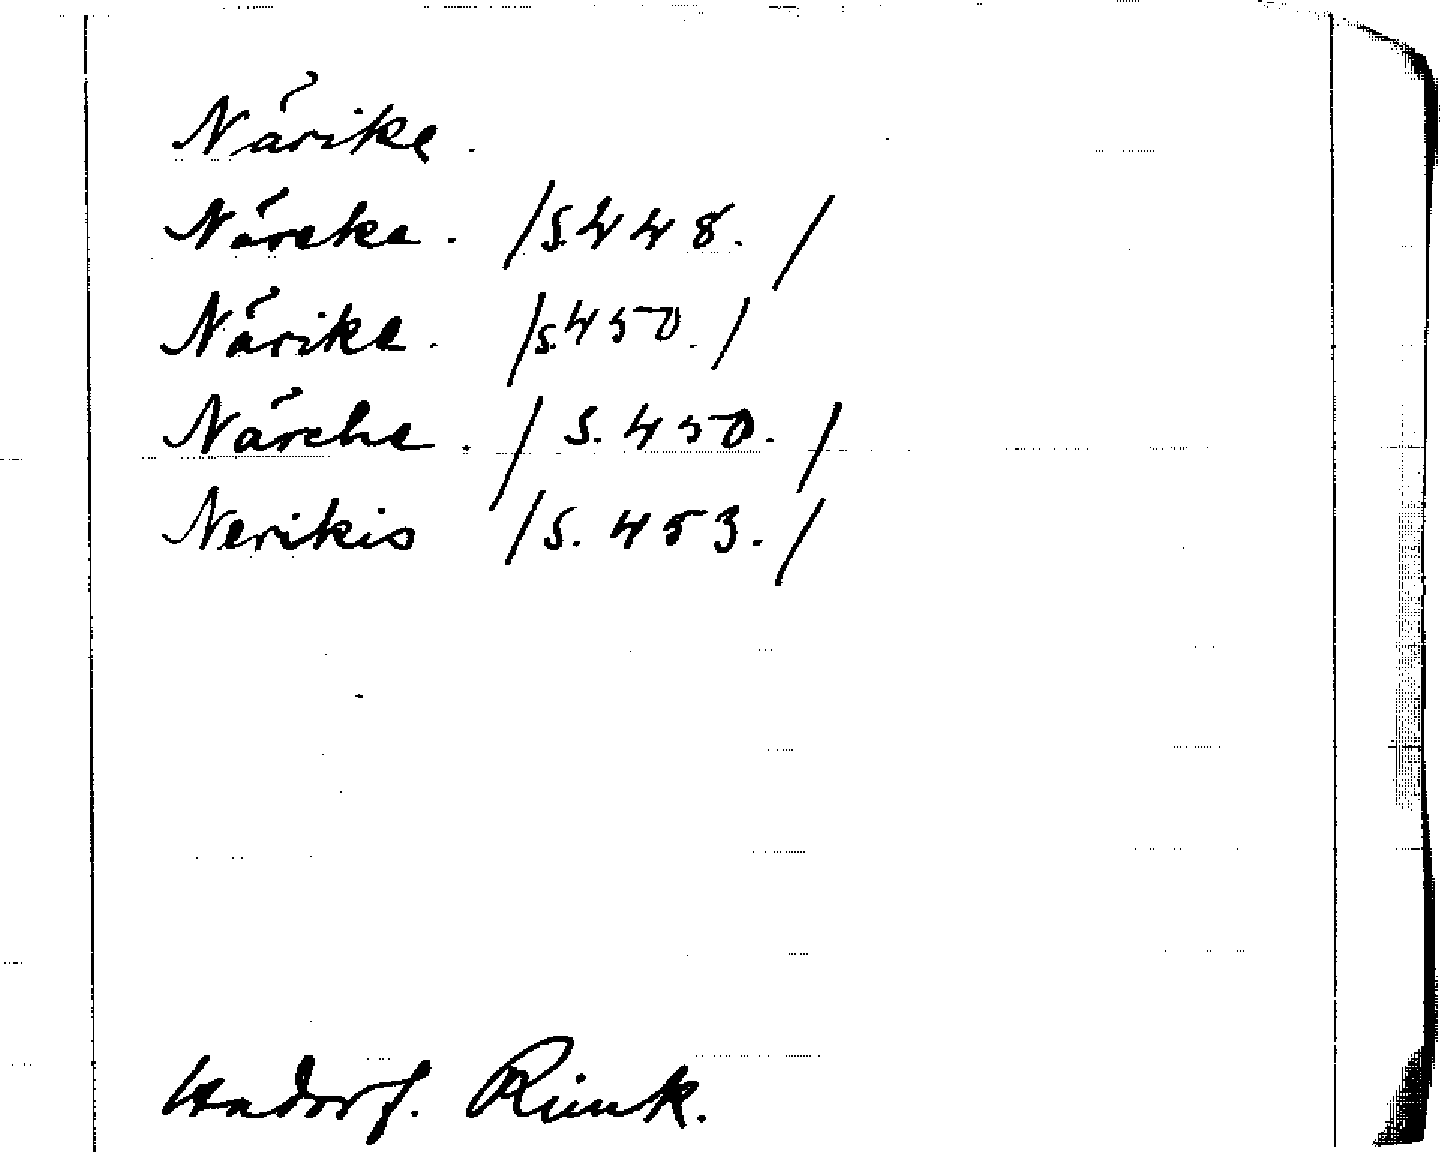 Närike.
Näreke. /S. 448./
Närike. /S. 450./
Närche. /S. 450./
Nerikis /S. 453./
Hadorf. Rimk.